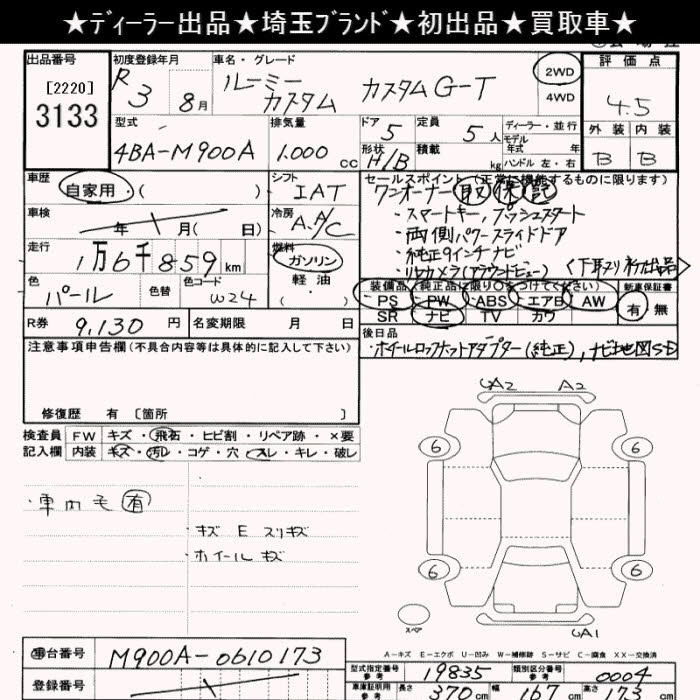 ★ディーラー出品★埼玉ブランド★初出品★買取車★
出品番号
[2220]
3133
初度登録年月
R 3 8月
車名・グレード
ルーミー
カスタム カスタムG-T
2WD
4WD
評価点
4.5
外装 内装
B B
型式
4BA-M900A
排気量
1.000 cc
ドア 5
形状 H/B
定員 5人
積載 kg
ディーラー・並行
モデル
年式 年
ハンドル 左・右
車歴
自家用・( )
シフト
IAT
車検
年 月( 日)
冷房
A.A/C
走行
1万6千859km
燃料
ガソリン
軽油
・( )
色
パール
色替
色コード
W24
R券 9,130 円
名変期限 月 日
セールスポイント(正常に機能するものに限ります)
ワンオーナー 取 保 記
・スマートキー,プッシュスタート
・両側パワースライドドア
・純正9インチナビ
・リヤカメラ(アラウンドビュー)
<下取り初出品>
装備品(純正品に限り○をつけてください)
PS PW ABS エアB AW
SR ナビ TV カワ
新車保証書
有 無
後日品
・ホイールロックナットアダプター(純正),ナビ地図SD
注意事項申告欄(不具合内容等は具体的に記入して下さい)
修復歴 有 〔箇所 〕
検査員
記入欄
FW キズ・飛石・ヒビ割・リペア跡・×要
内装 キズ・汚レ・コゲ・穴・スレ・キレ・破レ
・車内毛有
・キズ E スリキズ
・ホイールキズ
UA2 A2
6 6
6 6
スペア
UA1
A-キズ E-エクボ U-凹み W-補修跡 S-サビ C-腐食 XX-交換済
車台番号
M900A-0610173
登録番号
型式指定番号
参考
19835
類別区分番号
参考
0004
車庫証明用
参考
長さ 370cm 幅 167 高さ 173cm